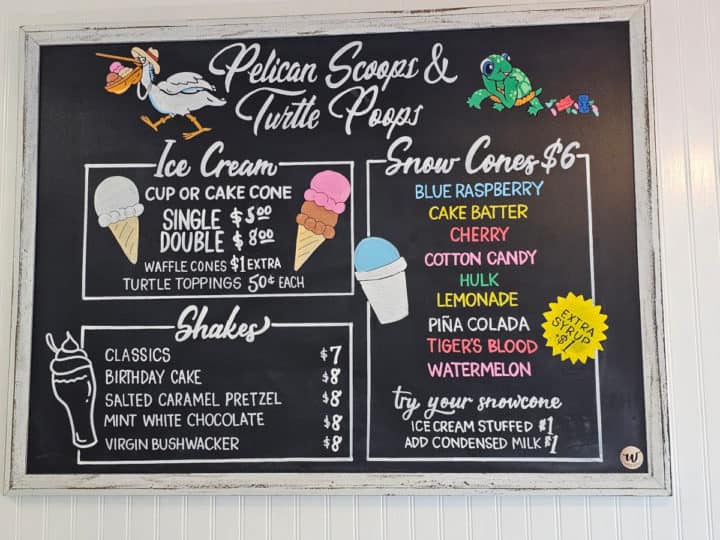 Pelican Scoops &
Turtle Poops
Ice Cream
CUP OR CAKE CONE
SINGLE $5.00
DOUBLE $8.00
WAFFLE CONES $1 EXTRA
TURTLE TOPPINGS 50¢ EACH
Shakes
CLASSICS $7
BIRTHDAY CAKE $8
SALTED CARAMEL PRETZEL $8
MINT WHITE CHOCOLATE $8
VIRGIN BUSHWACKER $8
Snow Cones $6
BLUE RASPBERRY
CAKE BATTER
CHERRY
COTTON CANDY
HULK
LEMONADE
PIÑA COLADA
TIGER'S BLOOD
WATERMELON
EXTRA
SYRUP
$1
try your snowcone
ICE CREAM STUFFED $1
ADD CONDENSED MILK $1
W